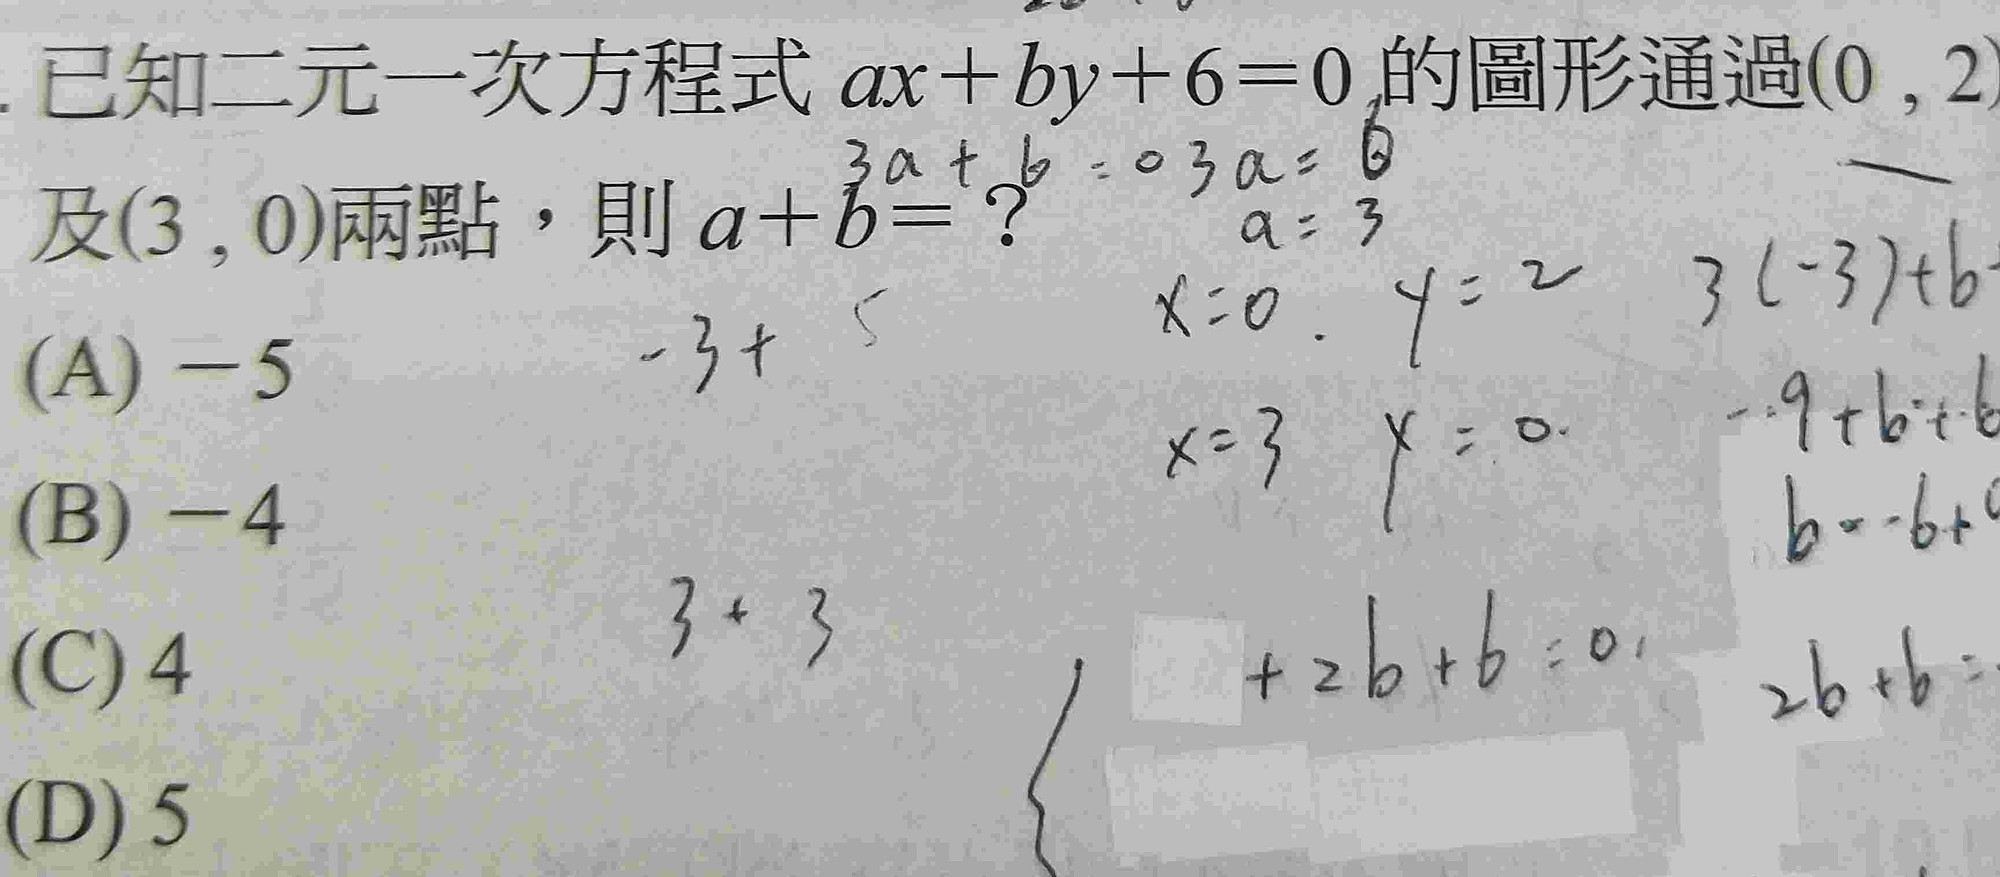 已知二元一次方程式 ax+by+6=0 的圖形通過(0 , 2)
3a + 6 = 0 3a = 6
及(3 , 0)兩點，則 a+b=？
a = 3
x=0 . y=2 3(-3)+b
(A) －5
-3+ 5
x=3 y=0.
-9+b+6
(B) －4
b=-6+
3+3
+2b+6=0
2b+6=
(C) 4
(D) 5